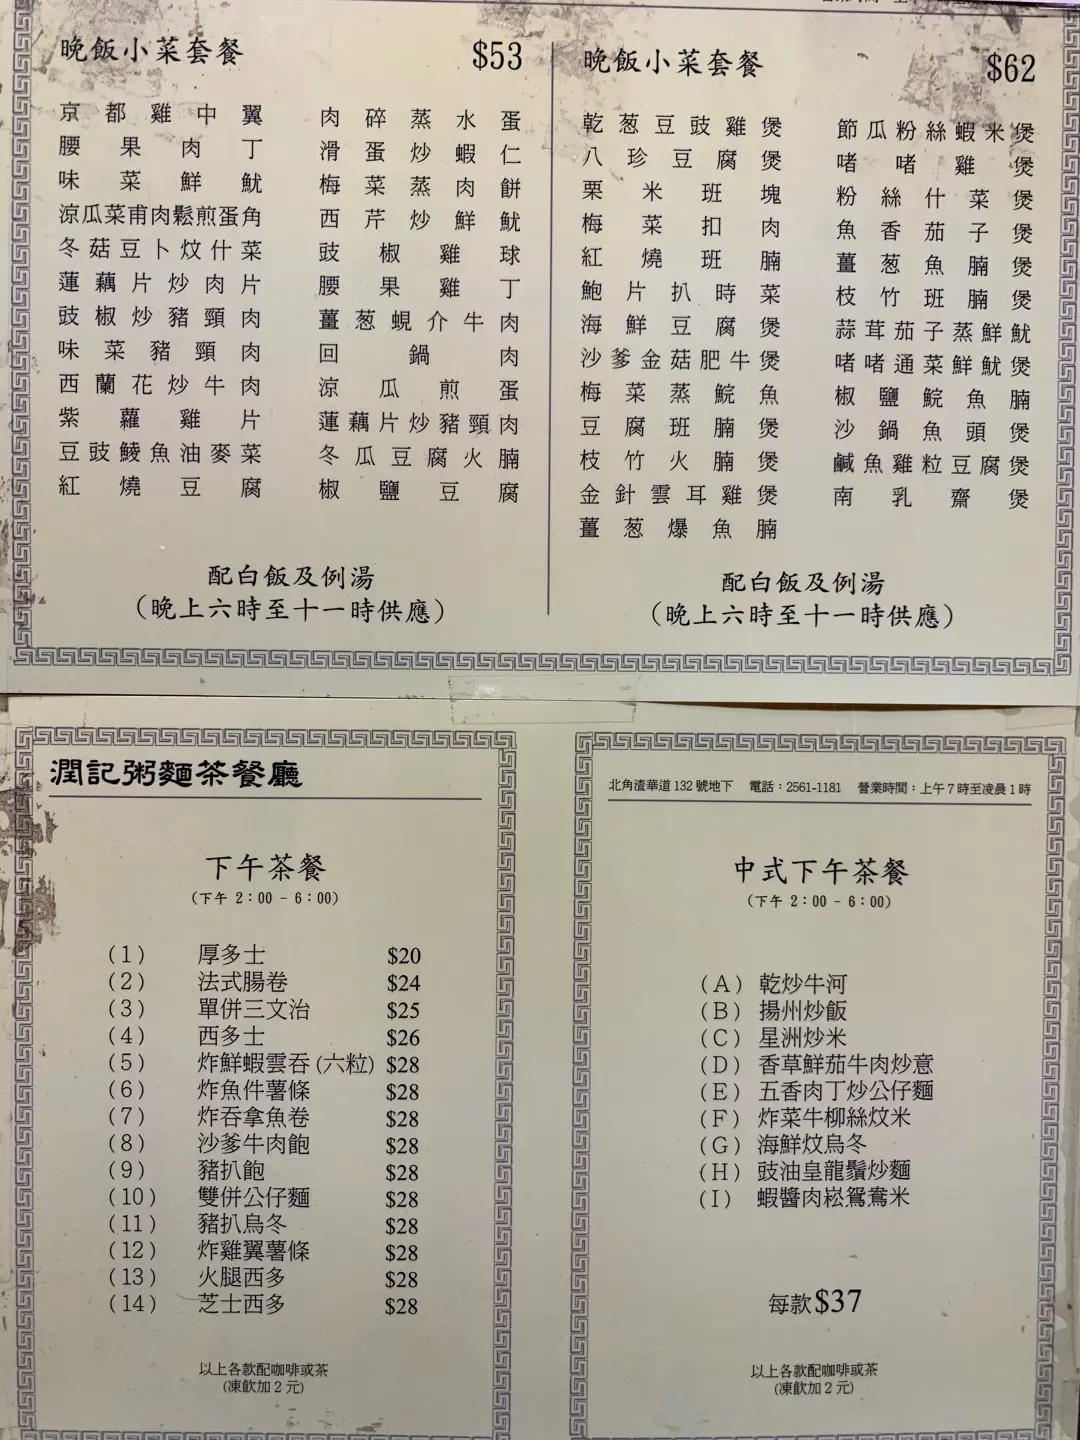 晚飯小菜套餐 $53
京都雞中翼
腰果肉丁
味菜鮮魷
涼瓜菜甫肉鬆煎蛋角
冬菇豆卜炆什菜
蓮藕片炒肉片
豉椒炒豬頸肉
味菜豬頸肉
西蘭花炒牛肉
紫蘿雞片
豆豉鯪魚油麥菜
紅燒豆腐
肉碎蒸水蛋
滑蛋炒蝦仁
梅菜蒸肉餅
西芹炒鮮魷
豉椒雞球
腰果雞丁
薑葱蜆介牛肉
回鍋肉
涼瓜煎蛋
蓮藕片炒豬頸肉
冬瓜豆腐火腩
椒鹽豆腐
配白飯及例湯
(晚上六時至十一時供應)
晚飯小菜套餐 $62
乾葱豆豉雞煲
八珍豆腐煲
栗米班塊
梅菜扣肉
紅燒班腩
鮑片扒時菜
海鮮豆腐煲
沙爹金菇肥牛煲
梅菜蒸鯇魚
豆腐班腩煲
枝竹火腩煲
金針雲耳雞煲
薑葱爆魚腩
節瓜粉絲蝦米煲
啫啫雞煲
粉絲什菜煲
魚香茄子煲
薑葱魚腩煲
枝竹班腩煲
蒜茸茄子蒸鮮魷
啫啫通菜鮮魷煲
椒鹽鯇魚腩
沙鍋魚頭煲
鹹魚雞粒豆腐煲
南乳齋煲
配白飯及例湯
(晚上六時至十一時供應)
潤記粥麵茶餐廳
下午茶餐
(下午 2:00 - 6:00)
(1) 厚多士 $20
(2) 法式腸卷 $24
(3) 單併三文治 $25
(4) 西多士 $26
(5) 炸鮮蝦雲吞(六粒) $28
(6) 炸魚件薯條 $28
(7) 炸吞拿魚卷 $28
(8) 沙爹牛肉飽 $28
(9) 豬扒飽 $28
(10) 雙併公仔麵 $28
(11) 豬扒烏冬 $28
(12) 炸雞翼薯條 $28
(13) 火腿西多 $28
(14) 芝士西多 $28
以上各款配咖啡或茶
(凍飲加2元)
北角渣華道 132 號地下 電話：2561-1181 營業時間：上午 7 時至凌晨 1 時
中式下午茶餐
(下午 2:00 - 6:00)
(A) 乾炒牛河
(B) 揚州炒飯
(C) 星洲炒米
(D) 香草鮮茄牛肉炒意
(E) 五香肉丁炒公仔麵
(F) 炸菜牛柳絲炆米
(G) 海鮮炆烏冬
(H) 豉油皇龍鬚炒麵
(I) 蝦醬肉崧鴛鴦米
每款$37
以上各款配咖啡或茶
(凍飲加2元)